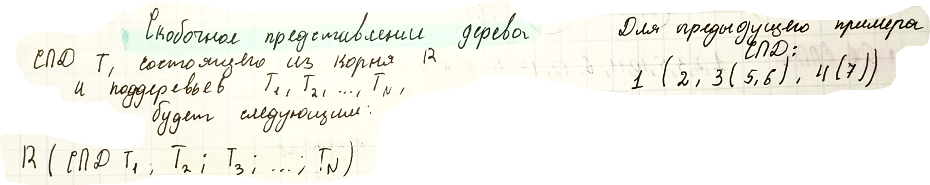 Скобочное представлении дерева
СПД T, состоящего из корня R
и поддеревьев T1, T2, ..., TN,
будет следующим:
R ( СПД T1, T2; T3; ...; TN)
Для предыдущего примера
СПД:
1 (2, 3(5,6), 4(7))